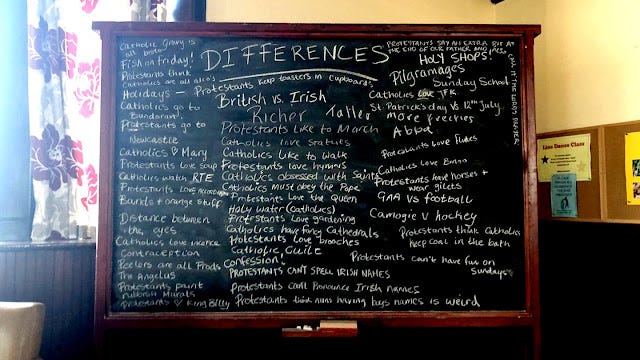 DIFFERENCES
Catholic Gravy is
all bisto
Fish on Friday!
Protestants think
Catholics are all alco's
Holidays –
Catholics go to
Bundoran.
Protestants go to
Newcastle
Catholics ♡ Mary
Protestants love soup
Catholics watch RTE
Protestants love
Bands + orange stuff
Distance between
the eyes
Catholics love incence
Contraception
Peelers are all Prods
The Angelus
Protestants paint
rubbish Murals
Protestants ♡ King Billy
Protestants keep toasters in cupboards
British vs. Irish
Richer
Taller
Protestants like to March
Catholics love statues
Catholics like to walk
Protestants love hymns
Catholics obsessed with Saints
Catholics must obey the Pope
Protestants love the Queen
Holy water (Catholics)
Protestants love gardening
Catholics have fancy Cathedrals
Protestants love brooches
Catholic Guilt
Confession!
PROTESTANTS CAN'T SPELL IRISH NAMES
Protestants can't Pronounce Irish names
Protestants think nuns having boys names is weird
PROTESTANTS SAY AN EXTRA BIT AT
THE END OF OUR FATHER AND
CALL IT THE LORDS PRAYER
HOLY SHOPS!
Pilgramages
Sunday School
Catholics love JFK.
St. Patrick's day VS 12th July
More freckles
Abba
Protestants love Flutes
Catholics love Bingo
Protestants have horses +
wear gilets
GAA VS football
Camogie V hockey
Protestants think Catholics
keep coal in the bath
Protestants can't have fun on
Sundays
Line Dance Class